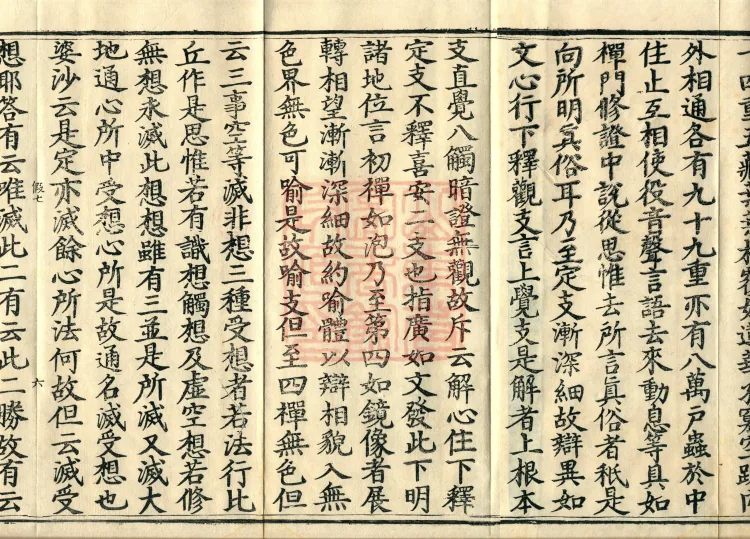 外相通各有九十九重亦有八萬戸蟲於中
住止互相使役音聲言語去來動息等具如
禪門修證中說從思惟去所言真俗者秖是
向所明真俗耳乃至定支漸深細故辯異如
文心行下釋觀支言上覺支是解者上根本
支直覺八觸暗證無觀故斥云解心住下釋
定支不釋喜安二支也指廣如文發此下明
諸地位言初禪如泡乃至第四如鏡像者展
轉相望漸漸深細故約喻體以辯相貌入無
色界無色可喻是故喻支但至四禪無色但
云三事空等滅非想三種受想者若法行比
丘作是思惟若有識想觸想及虛空想若修
無想永滅此想想雖有三並是所滅又滅大
地通心所中受想心所是故通名滅受想也
婆沙云是定亦滅餘心所法何故但云滅受
假七 六
想耶答有云唯滅此二有云此二勝故有云